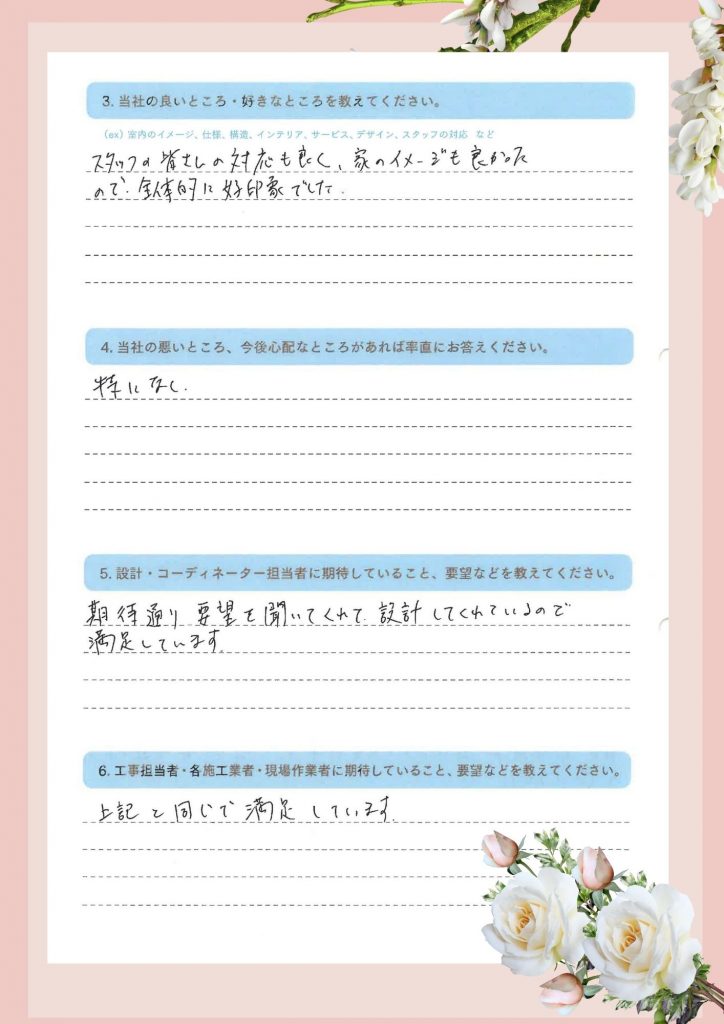 3. 当社の良いところ・好きなところを教えてください。
（ex）室内のイメージ、仕様、構造、インテリア、サービス、デザイン、スタッフの対応 など
スタッフの皆さんの対応も良く、家のイメージも良かった
ので、全体的に好印象でした。
4. 当社の悪いところ、今後心配なところがあれば率直にお答えください。
特になし.
5. 設計・コーディネーター担当者に期待していること、要望などを教えてください。
期待通り要望を聞いてくれて、設計してくれているので
満足しています。
6. 工事担当者・各施工業者・現場作業者に期待していること、要望などを教えてください。
上記と同じで満足しています。